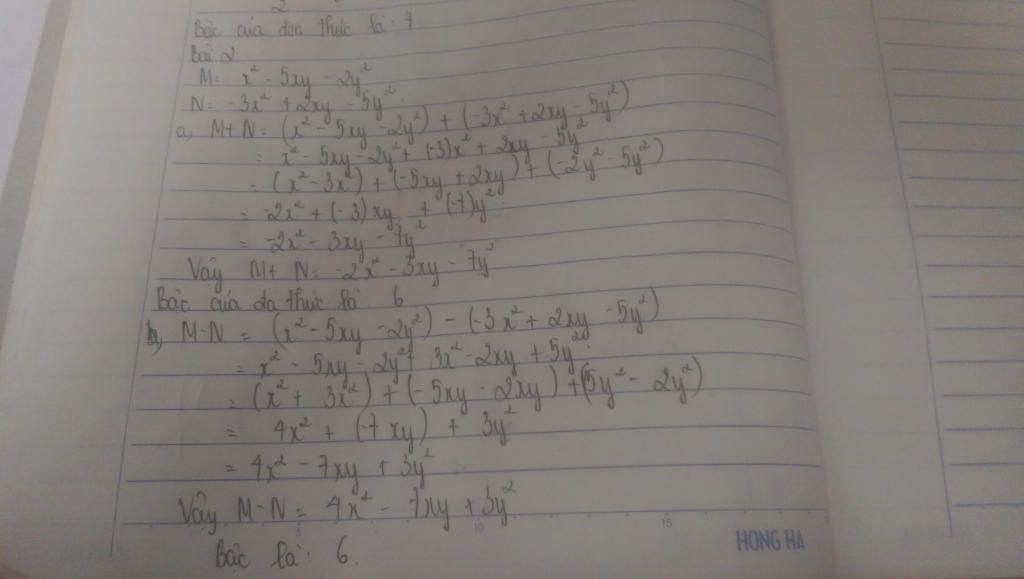 2
Bậc của đơn thức là: 7
Bài 2
M = x² - 5xy - 2y²
N = -3x² + 2xy - 5y²
a, M+N = (x² - 5xy - 2y²) + (-3x² + 2xy - 5y²)
= x² - 5xy - 2y² + (-3)x² + 2xy - 5y²
= (x² - 3x²) + (-5xy + 2xy) + (-2y² - 5y²)
= -2x² + (-3)xy + (-7)y²
= -2x² - 3xy - 7y²
Vậy M+ N = -2x² - 3xy - 7y²
Bậc của đa thức là: 6
b, M-N = (x² - 5xy - 2y²) - (-3x² + 2xy - 5y²)
= x² - 5xy - 2y² + 3x² - 2xy + 5y²
= (x² + 3x²) + (-5xy - 2xy) + (5y² - 2y²)
= 4x² + (-7xy) + 3y²
= 4x² - 7xy + 3y²
Vậy M-N = 4x² - 7xy + 3y²
5 10 15
HONG HA
Bậc là: 6.